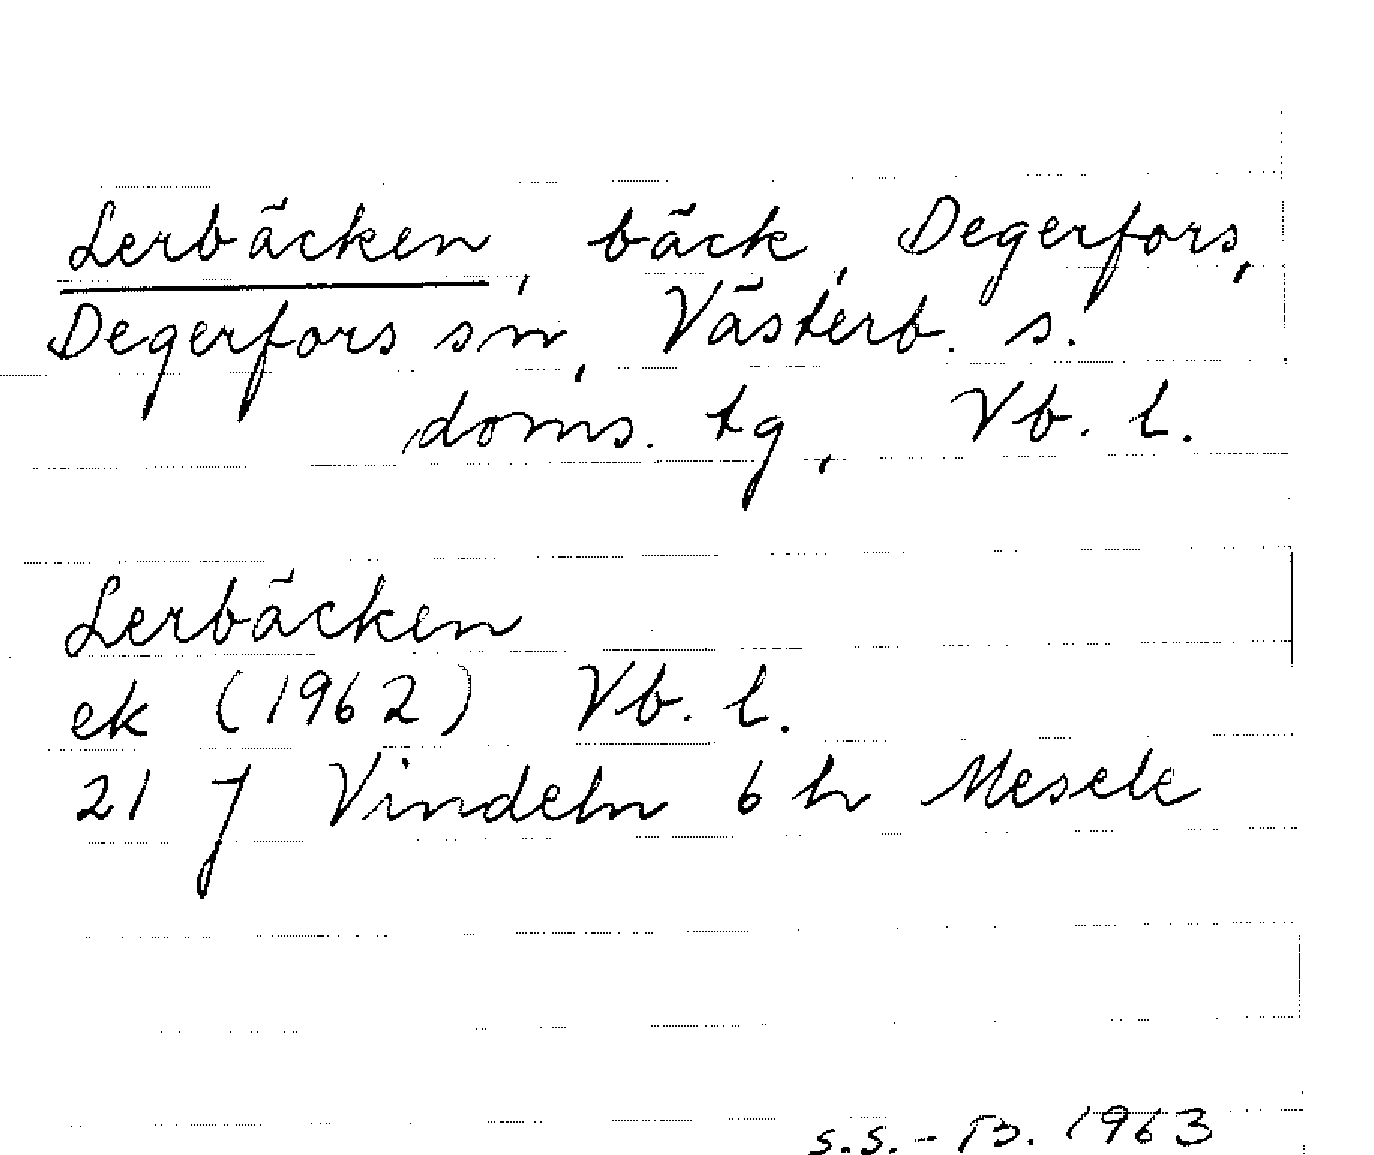 Lerbäcken, bäck, Degerfors,
Degerfors sn, Västerb. s.
doms. tg, Vb. l.
Lerbäcken
ek (1962) Vb. l.
21 J Vindeln 6 h Mesele
s.s. - B. 1963